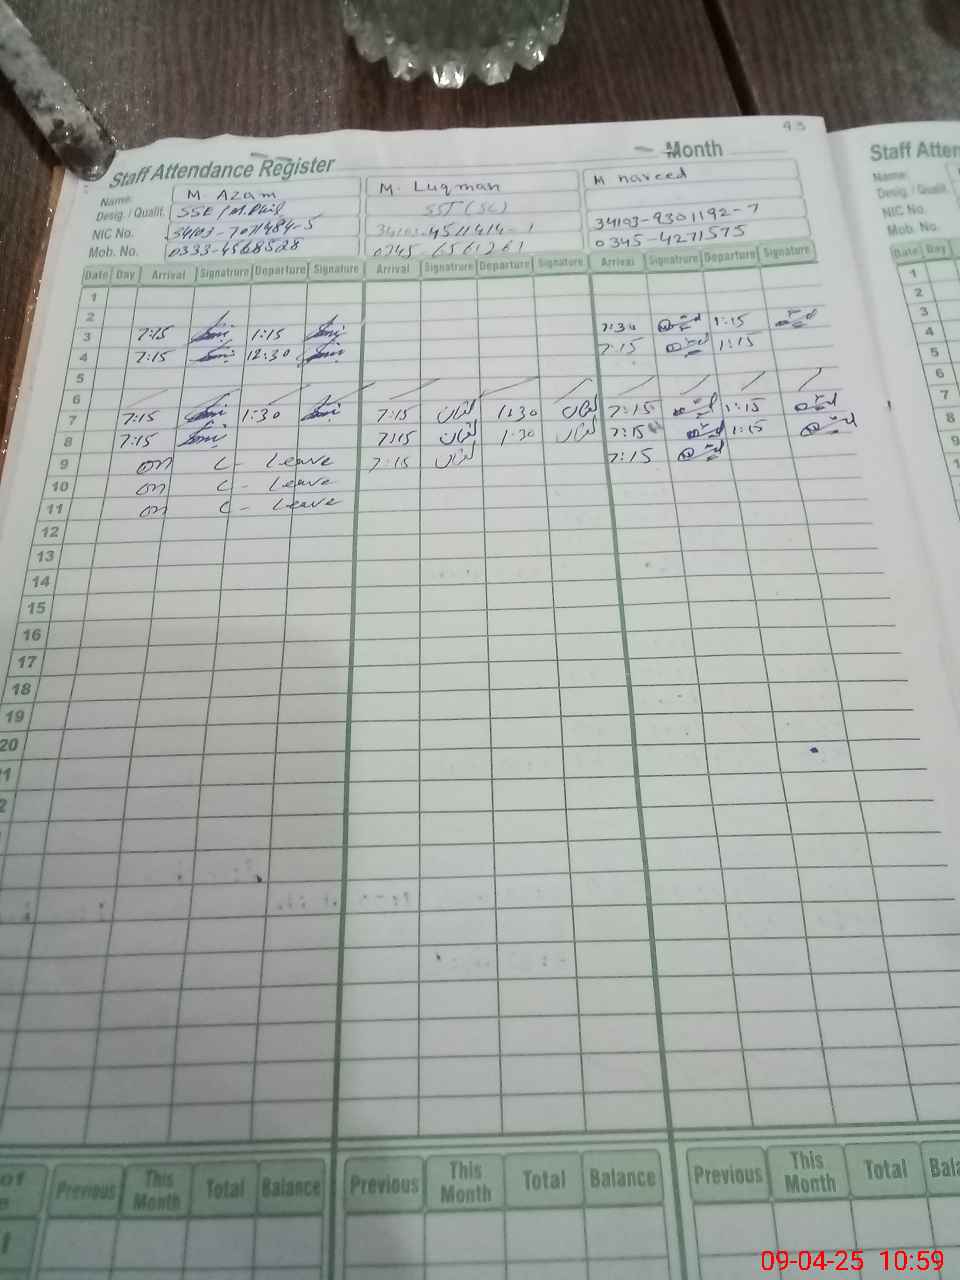 43
Staff Attendance Register Month
Name: M. Azam M. Luqman M naveed
Desig. / Qualit. SSE / M.Phil SST (SC)
NIC No. 34103-7071484-5 34103-4511414-1 34103-9301192-7
Mob. No. 0333-4568528 0345-6561261 0345-4271575
Date Day Arrival Signatrure Departure Signature Arrival Signatrure Departure Signature Arrival Signatrure Departure Signature
1
2
3 7:15 1:15 7:30 1:15
4 7:15 12:30 7:15 1:15
5
6
7 7:15 1:30 7:15 لقمان 1:30 لقمان 7:15 1:15
8 7:15 7:15 لقمان 1:30 لقمان 7:15 1:15
9 on C - Leave 7:15 لقمان 7:15
10 on C - Leave
11 on C - Leave
12
13
14
15
16
17
18
19
20
1
2
of Previous This Month Total Balance Previous This Month Total Balance Previous This Month Total Bala
Staff Atten
Name:
Desig. / Qualit.
NIC No.
Mob. No.
Date Day
1
2
3
4
5
6
7
8
9
09-04-25 10:59